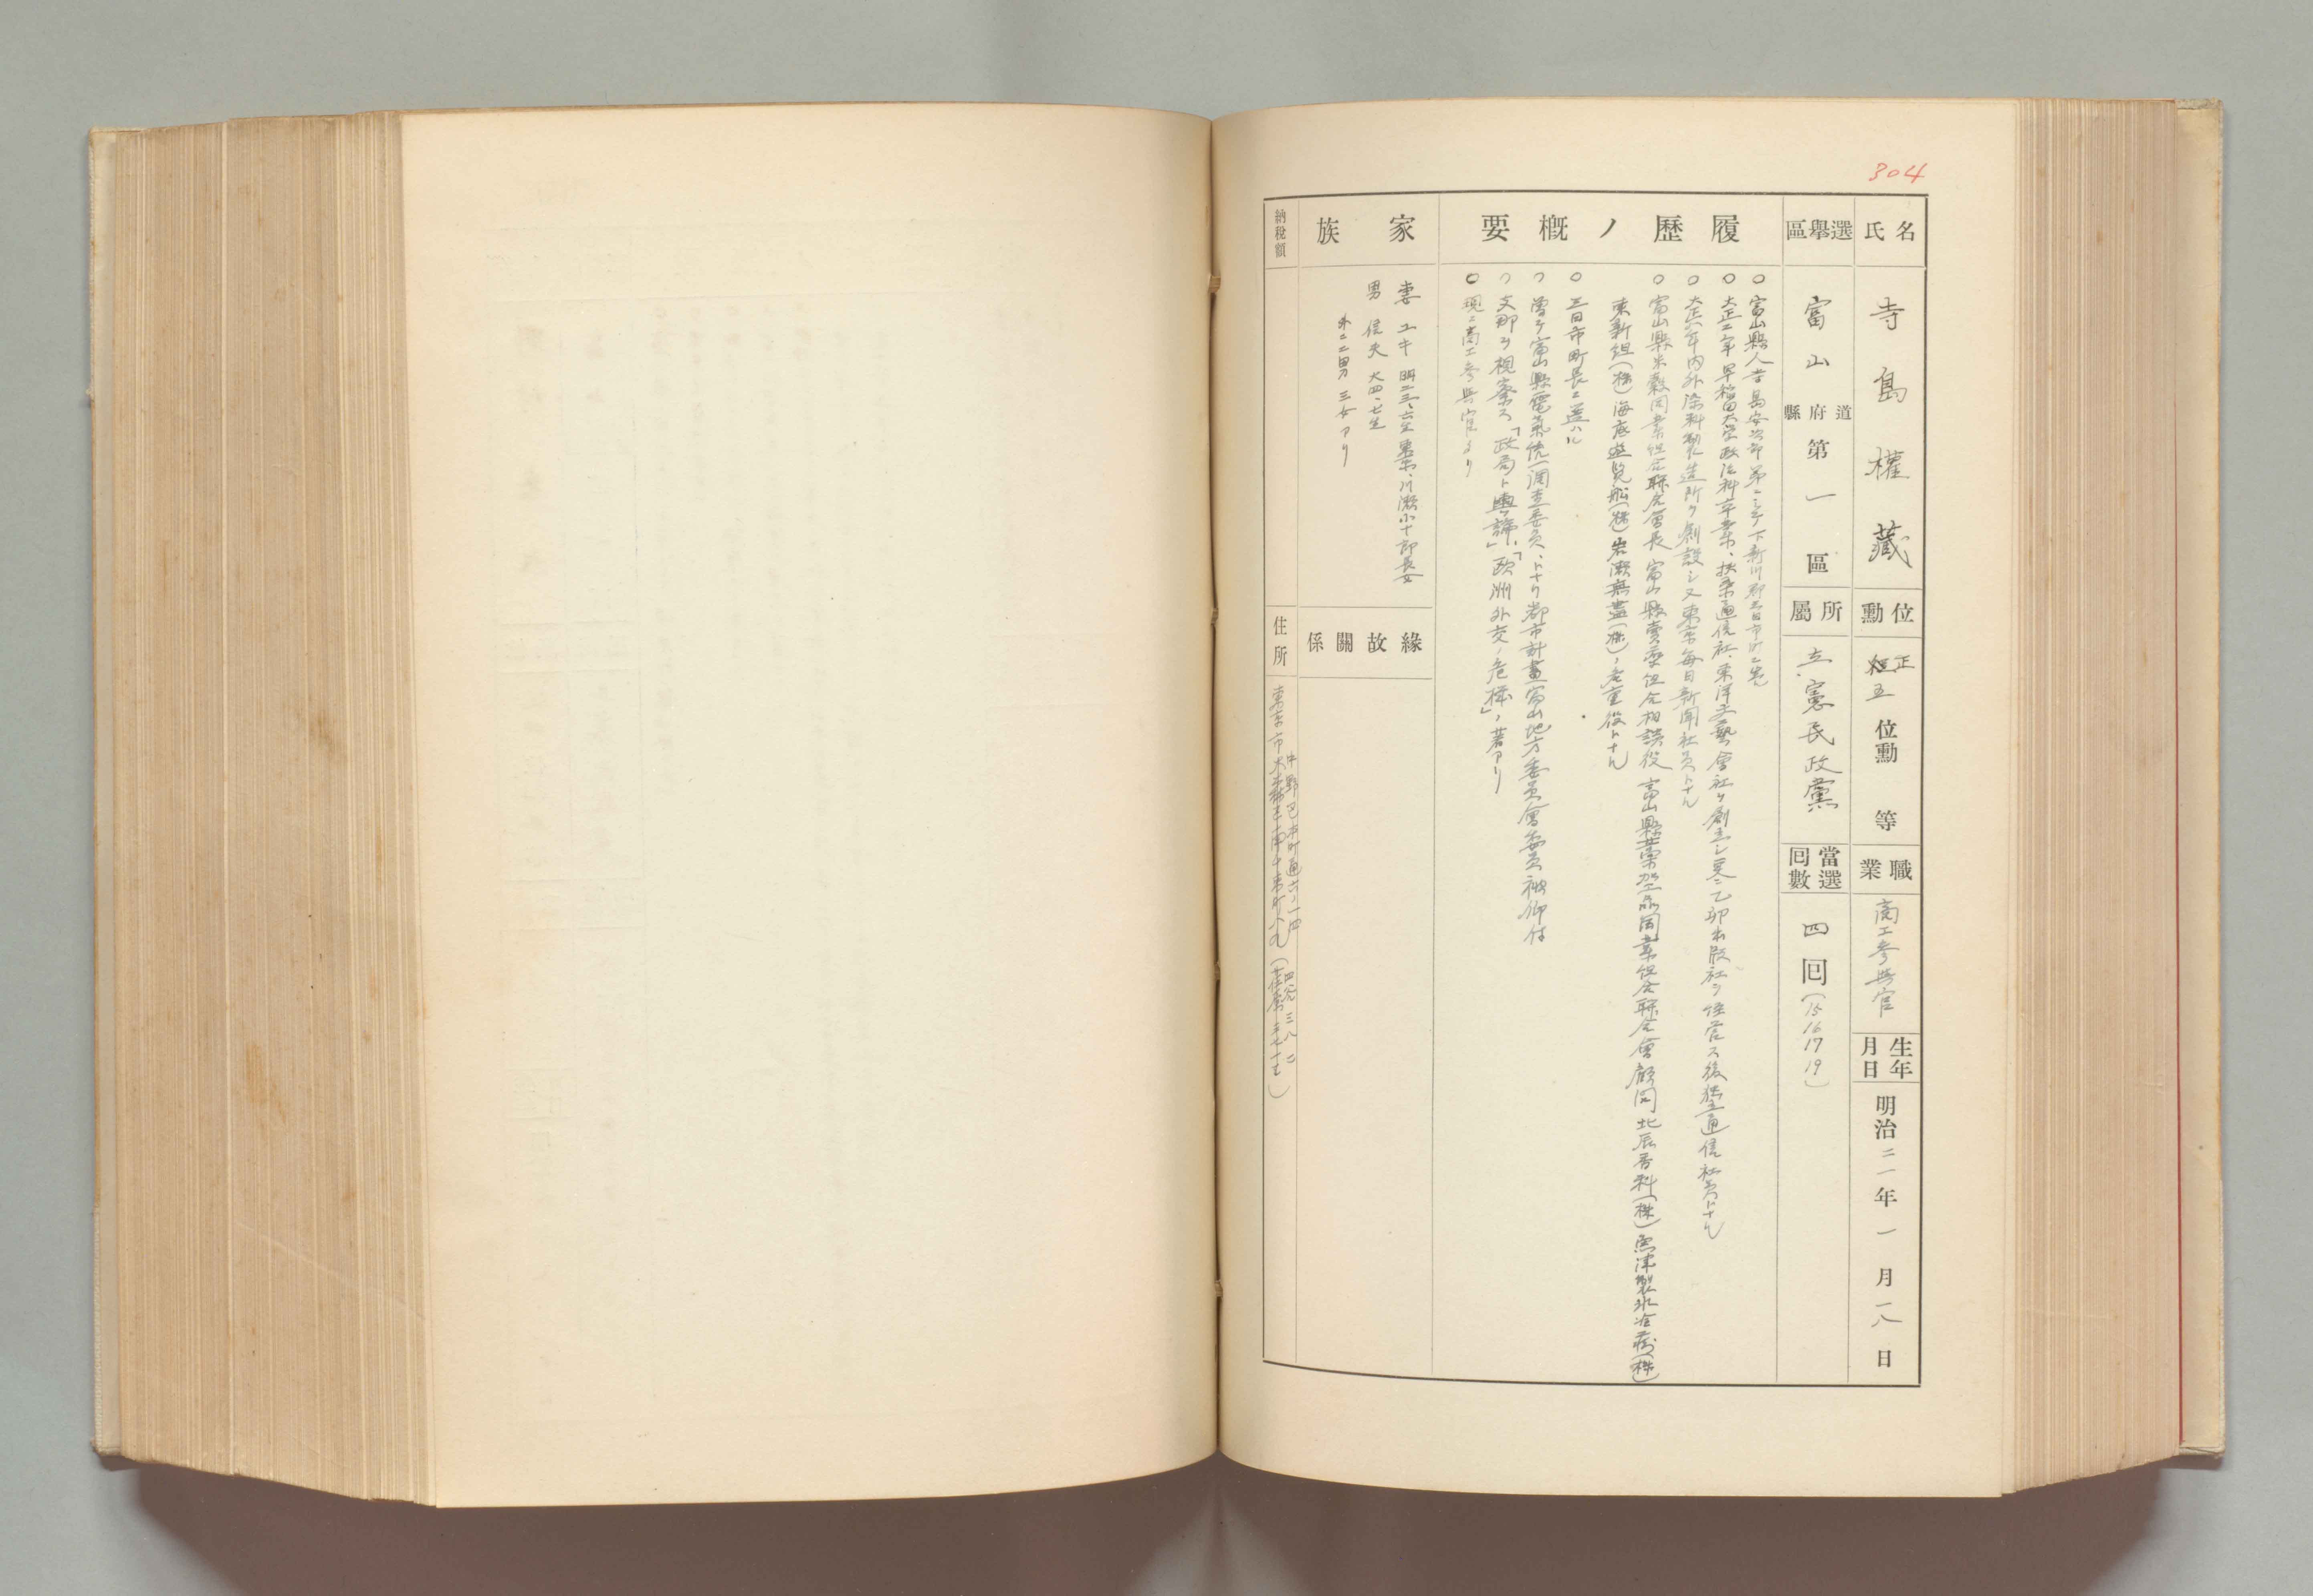 304
氏名
寺島權藏
位勳
正五位勳 等
職業
商工參與官
生年月日
明治二一年一月一八日
選擧區
富山 道府縣 第一區
所屬
立憲民政黨
當選囘數
四囘(15 16 17 19)
履歷ノ概要
○富山縣人寺島安次郎 弟ニシテ下新川郡三日市町ニ生ル
○大正二年早稻田大學政治科卒業、扶桑通信社、東洋工藝會社ヲ創立シ更ニ乙卯出版社ヲ經營ス後獨立通信社員トナル
○大正六年内外染料製造所ヲ創設シ又東京每日新聞社員トナル
○富山縣米穀同業組合聯合會長 富山縣賣藥組合相談役 富山縣 同業組合聯合會顧問 北辰香料(株) 魚津製氷冷藏(株)
東新組(株) 海底遊覽船(株) 岩瀨無盡(株)ノ各重役トナル
○三日市町長ニ選ハル
○曾テ富山縣電氣統一調査委員、トナリ都市計畫富山地方委員會委員被仰付
○支那ヲ視察ス「政局ト輿論」、「歐洲外交ノ危機」ノ著アリ
○現ニ商工參與官タリ
家族
妻 ユキ 明二三、六生 東京、川瀨小十郎長女
男 信夫 大四、七生
外ニ二男 三女アリ
緣故關係
納稅額
住所
中野區本町通六ノ一四 四谷三八
東京市
(荏原 )